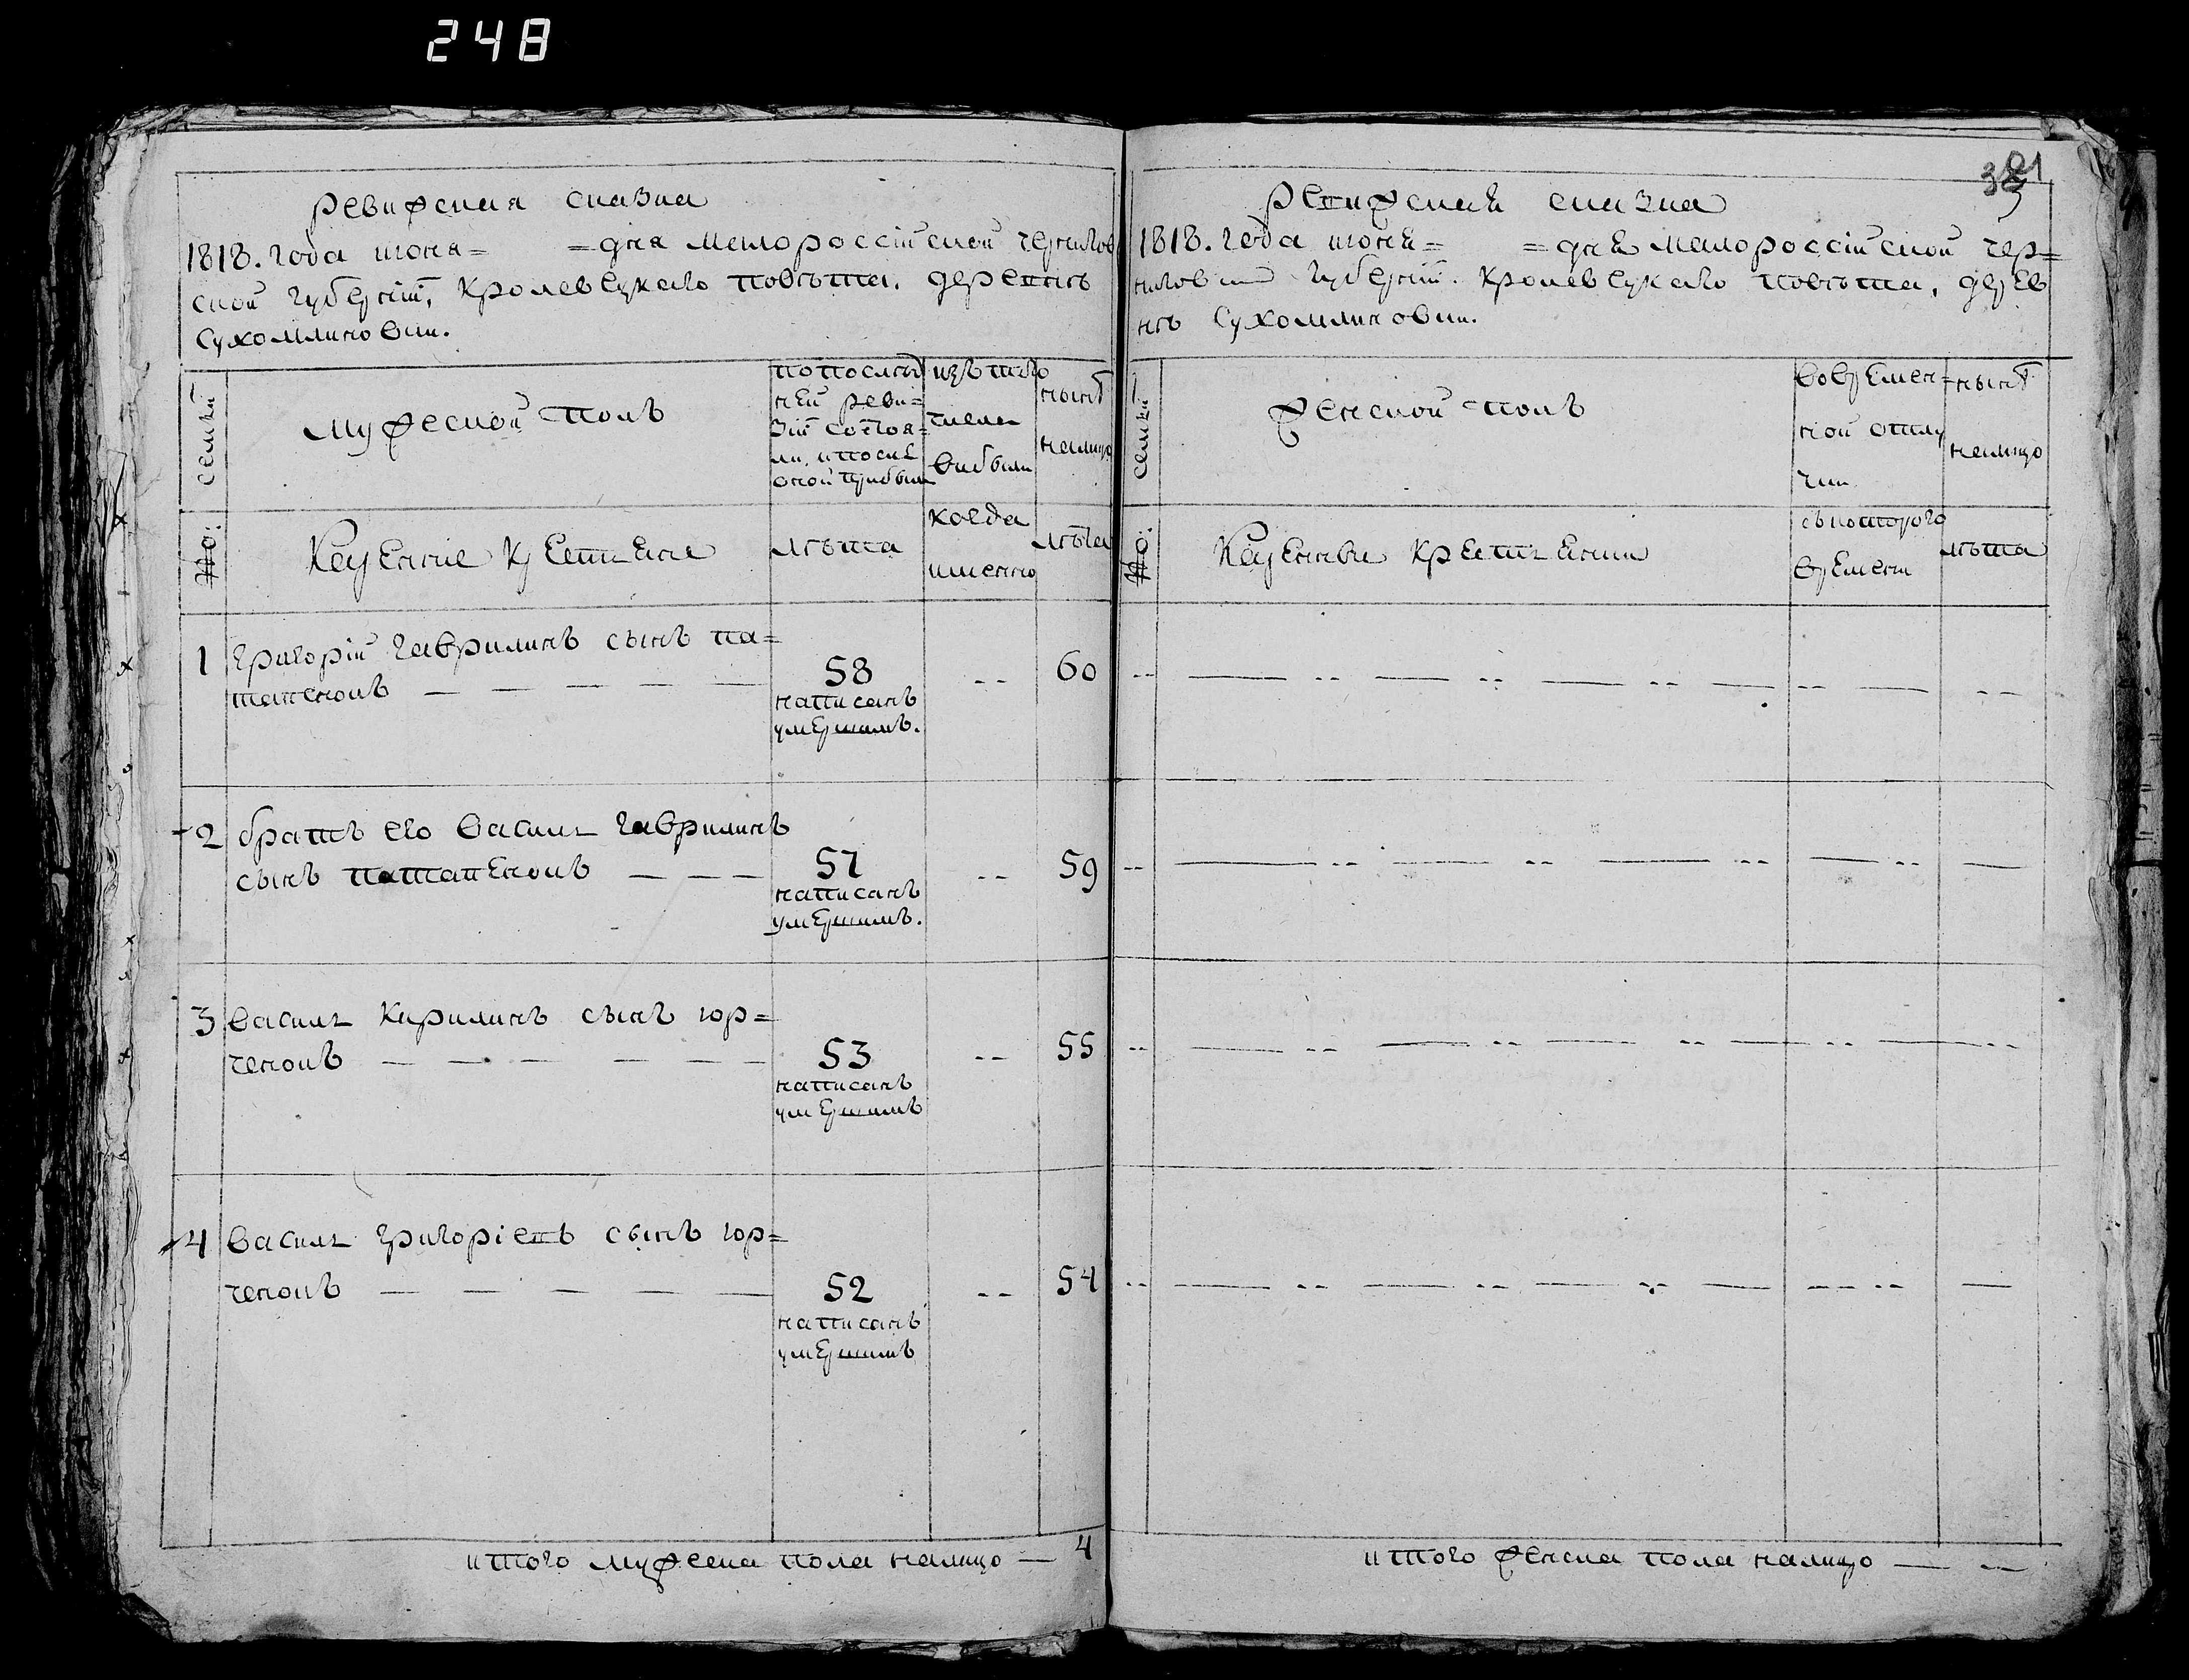 248
ревизская сказка
1818. года июня= =дня малороссійской чернигов
ской губерніи, Кролевецкаго повѣта. деревнѣ
Сухомлиновки.
семьи
мужеской полъ
попослѣд
ней реви=
зіи состоя=
ли, и послѣ
оной прибыли
изъ того
числа
выбыли
нынѣ
налицо
№:
Казенние Крестьяне
лѣта
когда
именно
лѣта
1
григорій гаврилинъ сынъ па=
тапенокъ — — — — —
58
написанъ
умершимъ.
--
60
2
братъ его василь гаврилинъ
сынъ патапенокъ — — —
57
написанъ
умершимъ.
--
59
3
василь Кирилинъ сынъ юр=
ченокъ — — — — —
53
написанъ
умершимъ
--
55
4
василь григоріевъ сынъ юр=
ченокъ — — — — —
52
написанъ
умершимъ
--
54
итого мужеска пола налицо — 4
381
ревизская сказка
1818. года июня= =дня малороссійской чер=
ниговской губерніи. Кролевецкаго повѣта, дерев
нѣ Сухомлиновки.
семьи
женской полъ
вовремен=
ной отлу
чки
нынѣ
налицо
№:
Казенные Крестьянки
съ которого
времени
лѣта
итого женска пола налицо — --